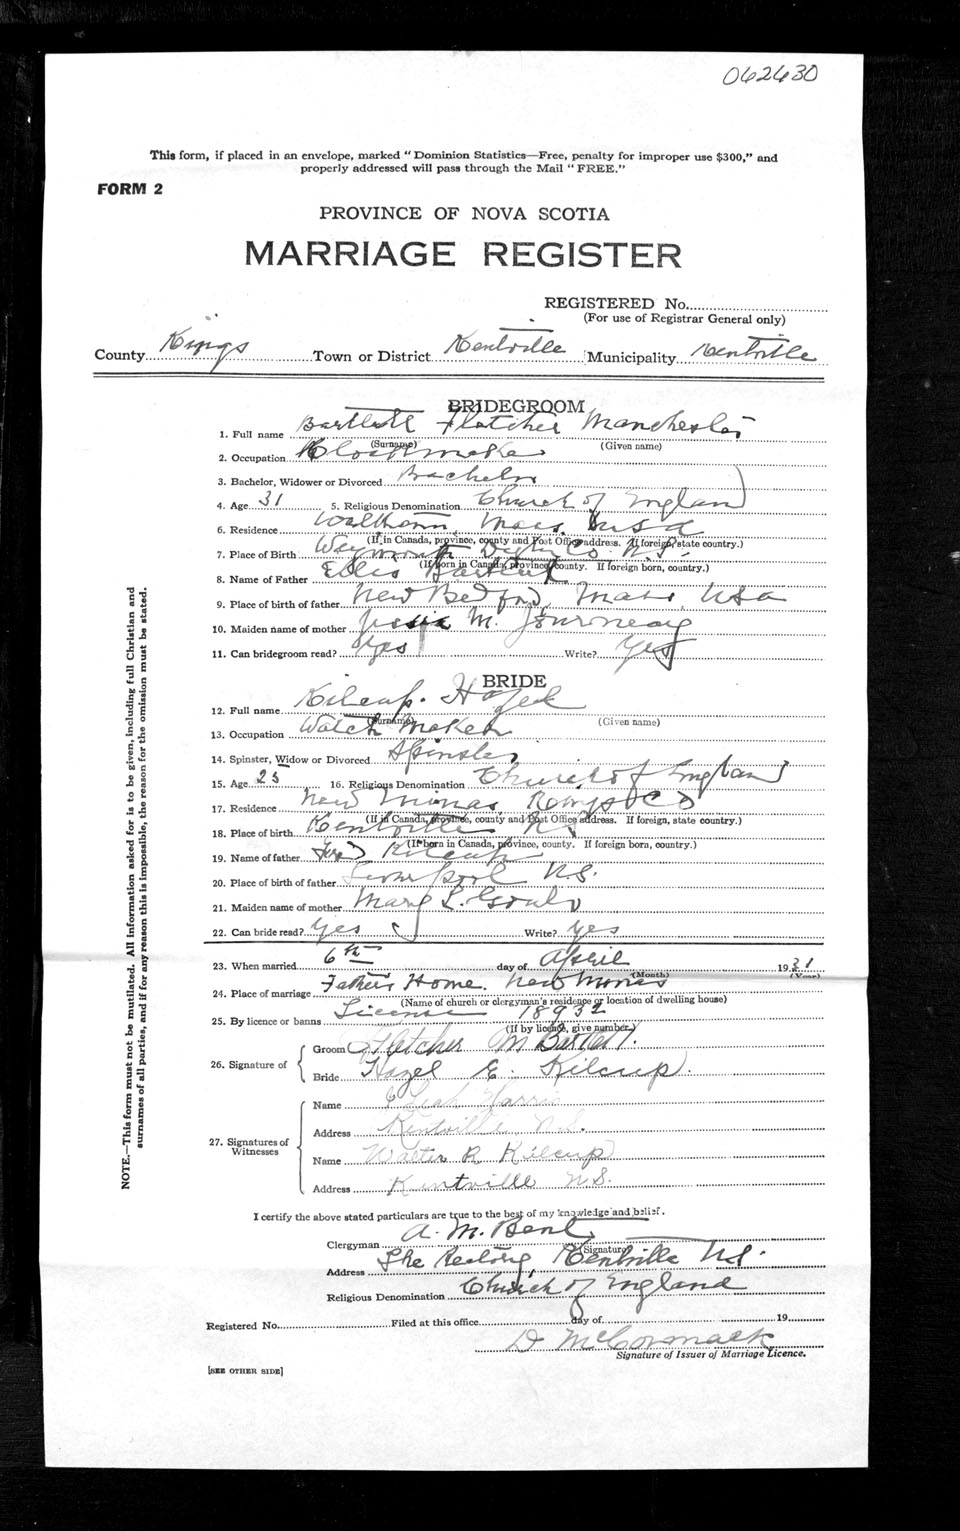 062630
This form, if placed in an envelope, marked "Dominion Statistics—Free, penalty for improper use $300," and
properly addressed will pass through the Mail "FREE."
FORM 2
PROVINCE OF NOVA SCOTIA
MARRIAGE REGISTER
REGISTERED No.
(For use of Registrar General only)
County Kings Town or District Kentville Municipality Kentville
BRIDEGROOM
1. Full name Bartlett Fletcher Manchester
(Surname) (Given name)
2. Occupation
3. Bachelor, Widower or Divorced Bachelor
4. Age 31 5. Religious Denomination Church of England
6. Residence Waltham, Mass, U S A
(If in Canada, province, county and Post Office address. If foreign, state country.)
7. Place of Birth Weymouth Digby Co. N.S.
(If born in Canada, province, county. If foreign born, country.)
8. Name of Father Ellis Bartlett
9. Place of birth of father New Bedford, Mass, USA
10. Maiden name of mother Jessie M. Journeay
11. Can bridegroom read? Yes Write? Yes
BRIDE
12. Full name Kilcup. Hazel
(Surname) (Given name)
13. Occupation Watch Maker
14. Spinster, Widow or Divorced Spinster
15. Age 25 16. Religious Denomination Church of England
17. Residence New Minas Kings Co
(If in Canada, province, county and Post Office address. If foreign, state country.)
18. Place of birth Kentville NS
(If born in Canada, province, county. If foreign born, country.)
19. Name of father Kilcup
20. Place of birth of father Liverpool N.S.
21. Maiden name of mother Mary L. Gould
22. Can bride read? Yes Write? Yes
23. When married 6th day of April 1931
(Month) (Year)
24. Place of marriage Father's Home. New Minas
(Name of church or clergyman's residence or location of dwelling house)
25. By licence or banns License 18932
(If by licence, give number.)
26. Signature of
Groom Fletcher M Bartlett.
Bride Hazel E. Kilcup.
27. Signatures of Witnesses
Name Harris
Address Kentville N.S.
Name Walter R Kilcup
Address Kentville N.S.
I certify the above stated particulars are true to the best of my knowledge and belief.
Clergyman A. M. Bent
(Signature)
Address The Rectory, Kentville N.S.
Religious Denomination Church of England
Registered No. Filed at this office day of 19
D McCormack
Signature of Issuer of Marriage Licence.
[SEE OTHER SIDE]
NOTE.—This form must not be mutilated. All information asked for is to be given, including full Christian and
surnames of all parties, and if for any reason this is impossible, the reason for the omission must be stated.